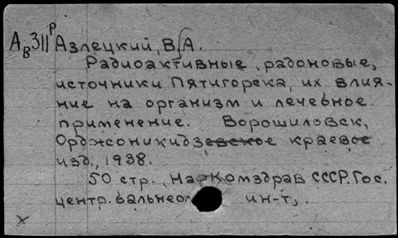 Ав311р Азлецкий, В.А.
Радиоактивные, радоновые,
источники Пятигорска, их влия-
ние на организм и лечебное
применение. Ворошиловск,
Орджоникидзевское краевое
изд., 1938.
50 стр., Наркомздрав СССР. Гос.
центр. бальнео ин-т,